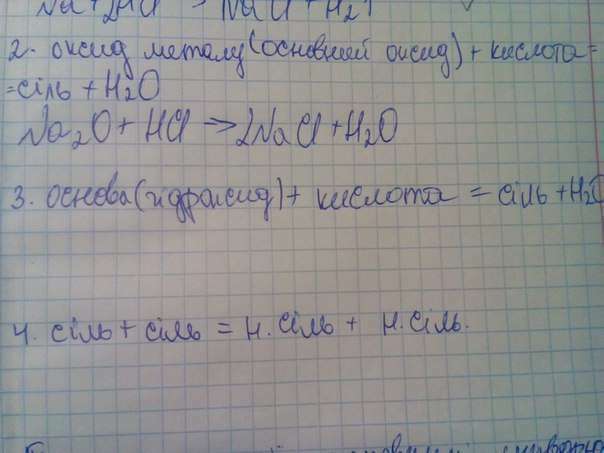 Na + 2HCl → NaCl + H2↑
2. оксид металу (основний оксид) + кислота =
= сіль + H2O
Na2O + HCl → 2NaCl + H2O
3. основа (гідраксид) + кислота = сіль + H2O
4. сіль + сіль = н. сіль + н. сіль.